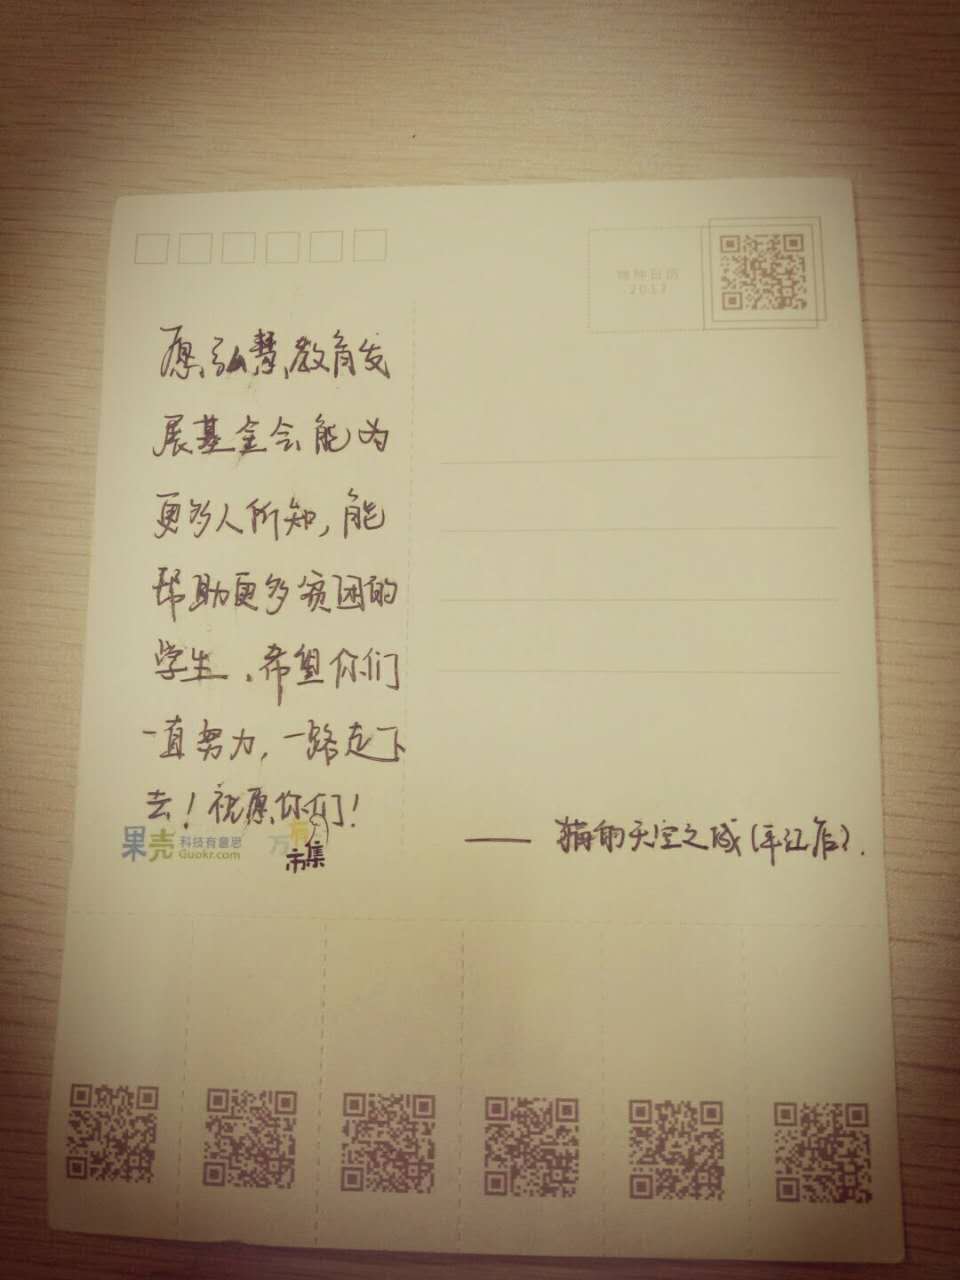 物种日历
2017
愿弘慧教育发
展基金会能为
更多人所知,能
帮助更多贫困的
学生。希望你们
一直努力,一路走下
去!祝愿你们!
果壳 科技有意思
Guokr.com
万有
市集
—— 猫的天空之城(平江店).